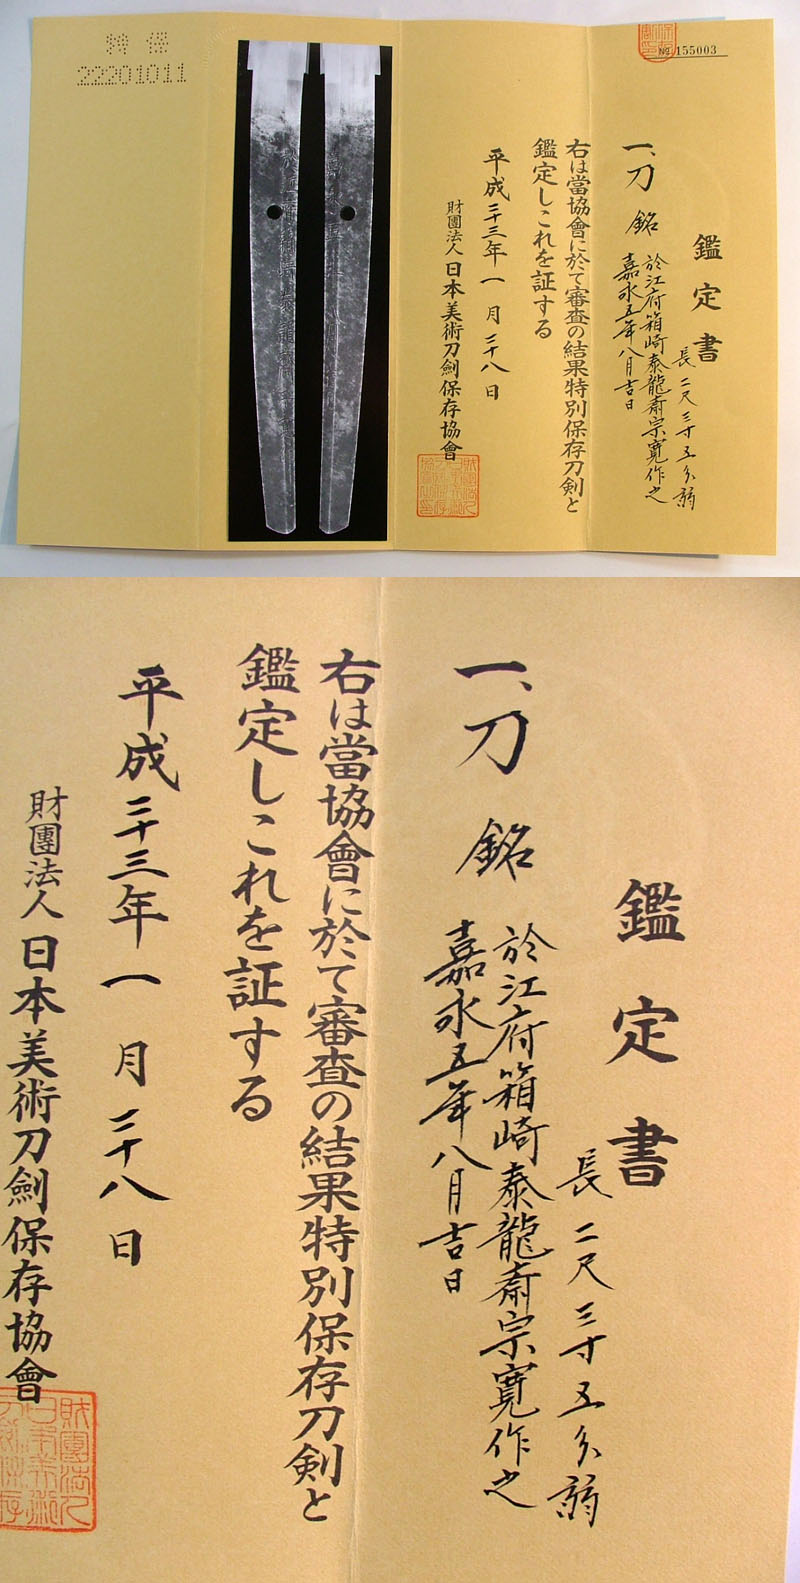 特保
22201011
No 155003
鑑定書
長二尺三寸五分弱
一、刀 銘 於江府箱崎泰龍斎宗寛作之
嘉永五年八月吉日
右は當協會に於て審査の結果特別保存刀剣と
鑑定しこれを証する
平成二十三年一月二十八日
財團法人日本美術刀劍保存協會
鑑定書
長二尺三寸五分弱
一、刀 銘 於江府箱崎泰龍斎宗寛作之
嘉永五年八月吉日
右は當協會に於て審査の結果特別保存刀剣と
鑑定しこれを証する
平成二十三年一月二十八日
財團法人日本美術刀劍保存協會